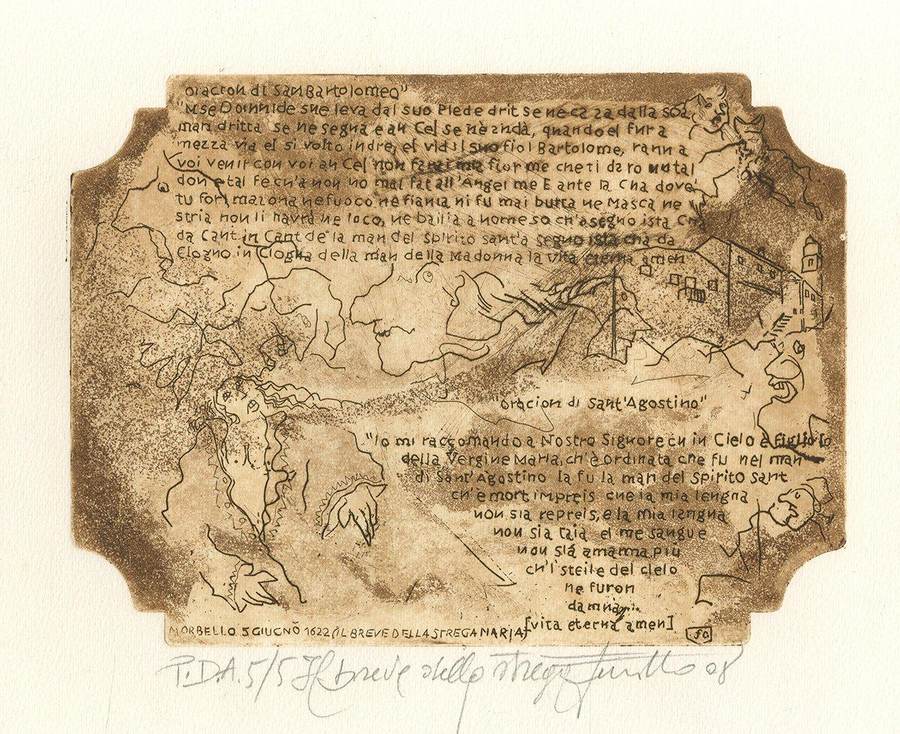 oracion di San Bartolomeo"
"M se Domnide sne leva dal suo Piede drit se ne caza dalla soa
man dritta se ne segna e an Cel se ne anda, quando el fura
mezza via el si volto indre, el vid il suo fiol Bartolome, rann a
voi venir con voi an Cel non farai ma fior me che ti daro un tal
don e tal fe ch'a non no mai fat all'Angel me E ante la Cha dove
tu fori mai ona ne fuoco ne fiama ni fu mai butta ne Masca ne
stria non li havrà ne loco, ne bailia a nome so ch'a segno ista Ch
da Cant in Cant de la man del Spirito santa segno ista cha da
Clogno in Clogna della man della Madonna la vita eterna amen
"oracion di Sant'Agostino"
"Io mi raccomando a Nostro Signore ch in Cielo e figliolo
della Vergine Maria, ch'è ordinata che fu nel man
di Sant'Agostino la fu la man del Spirito Sant
ch'e mort impreis che la mia lengna
non sia repreis, e la mia langna
non sia taia el me sangue
non sia amanna piu
ch'i steile del cielo
ne furon
damna
[vita eterna amen]
MORBELLO 5 GIUGNO 1622 (IL BREVE DELLA STREGA NARIA)
P.D.A. 5/5 Il breve della strega 08